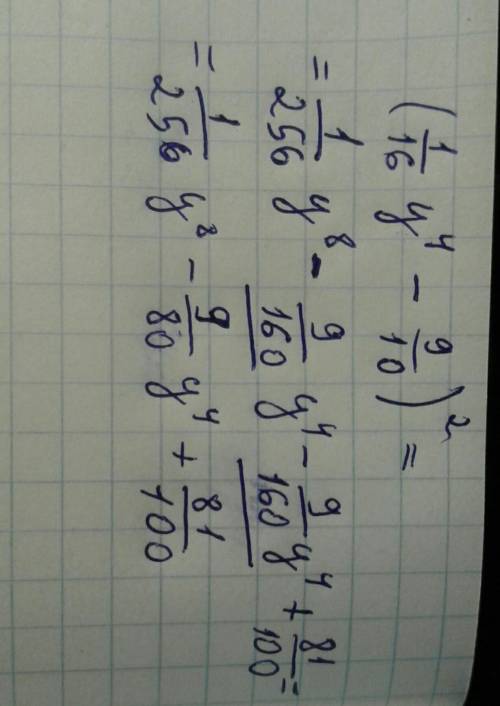 (1/16 y⁴ - 9/10)² =
= 1/256 y⁸ - 9/160 y⁴ - 9/160 y⁴ + 81/100 =
= 1/256 y⁸ - 9/80 y⁴ + 81/100